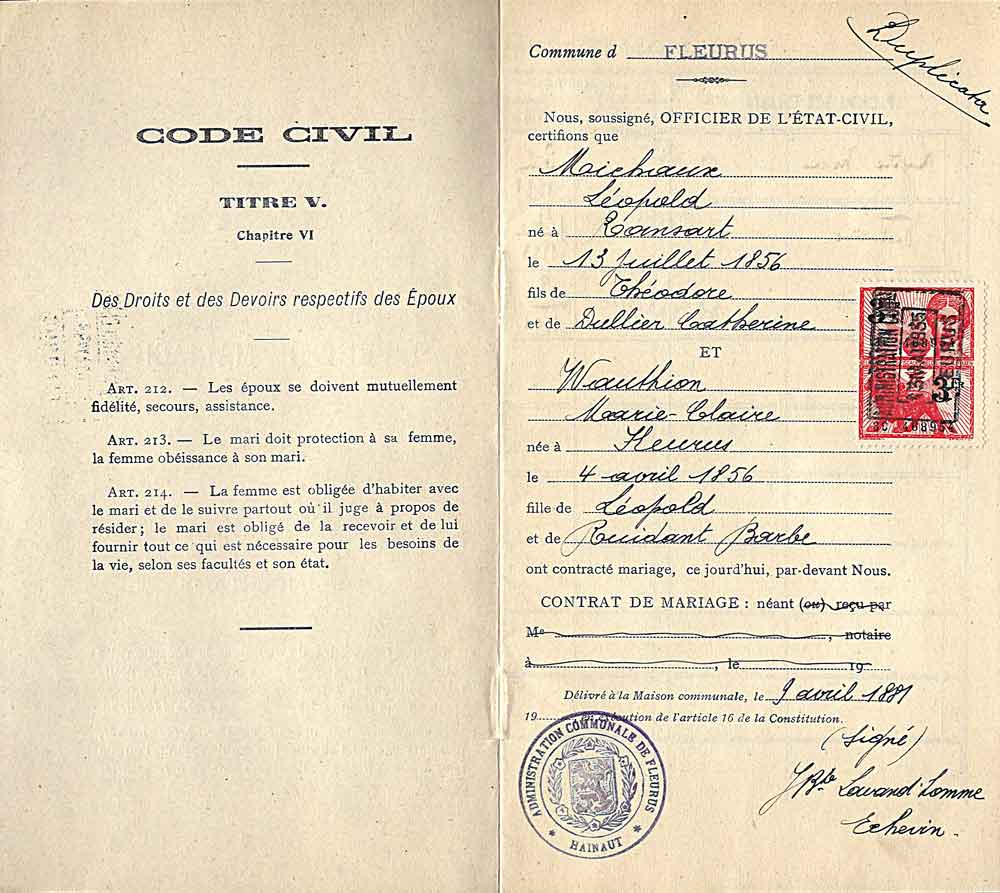 CODE CIVIL
TITRE V.
Chapitre VI
Des Droits et des Devoirs respectifs des Époux
ART. 212. — Les époux se doivent mutuellement
fidélité, secours, assistance.
ART. 213. — Le mari doit protection à sa femme,
la femme obéissance à son mari.
ART. 214. — La femme est obligée d'habiter avec
le mari et de le suivre partout où il juge à propos de
résider ; le mari est obligé de la recevoir et de lui
fournir tout ce qui est nécessaire pour les besoins de
la vie, selon ses facultés et son état.
Duplicata
Commune d FLEURUS
Nous, soussigné, OFFICIER DE L'ÉTAT-CIVIL,
certifions que
Michaux
Léopold
né à Ransart
le 13 juillet 1856
fils de Théodore
et de Dullier Catherine
ET
Wauthion
Marie-Claire
née à Fleurus
le 4 avril 1856
fille de Léopold
et de Ruidant Barbe
ont contracté mariage, ce jourd'hui, par-devant Nous.
CONTRAT DE MARIAGE : néant (ou) reçu par
Me , notaire
à , le 19
Délivré à la Maison communale, le 9 avril 1881
19 en exécution de l'article 16 de la Constitution.
(signé)
JBte Lavand'homme
Echevin.
ADMINISTRATION COMMUNALE DE FLEURUS
HAINAUT
ADMINISTRATION
FLEURUS
3